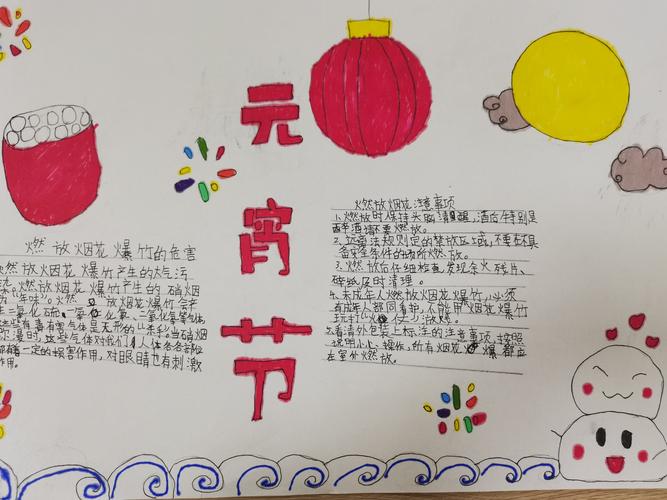 元
宵
节
燃放烟花爆竹的危害
然放烟花爆竹产生的大气污
爆竹产生的硝烟
"年味"。然 放烟花爆竹会产
二氧化硫、 氧化氮、二氧化氮等气体,
些有毒有害气体是无形的 当硝烟
弥漫时,这些气体对我们人体各各部位
都有一定的损害作用,对眼睛也有刺激
作用。
燃放烟花注意事项
1.燃放时保持头脑清醒,酒后特别是
醉酒请不要燃放。
2.遵章法规则定的禁放区域,不要在不具
备安全条件的场所燃放。
3.燃放后仔细检查发现余火残片、
碎纸及时清理。
4.未成年人燃放烟花爆竹,必须
有成年人都同看护,不能用烟花爆竹
玩打
5.看清外包装上标注的注意事项,按照
说明小心操作,所有烟花爆 都应
在室外燃放。